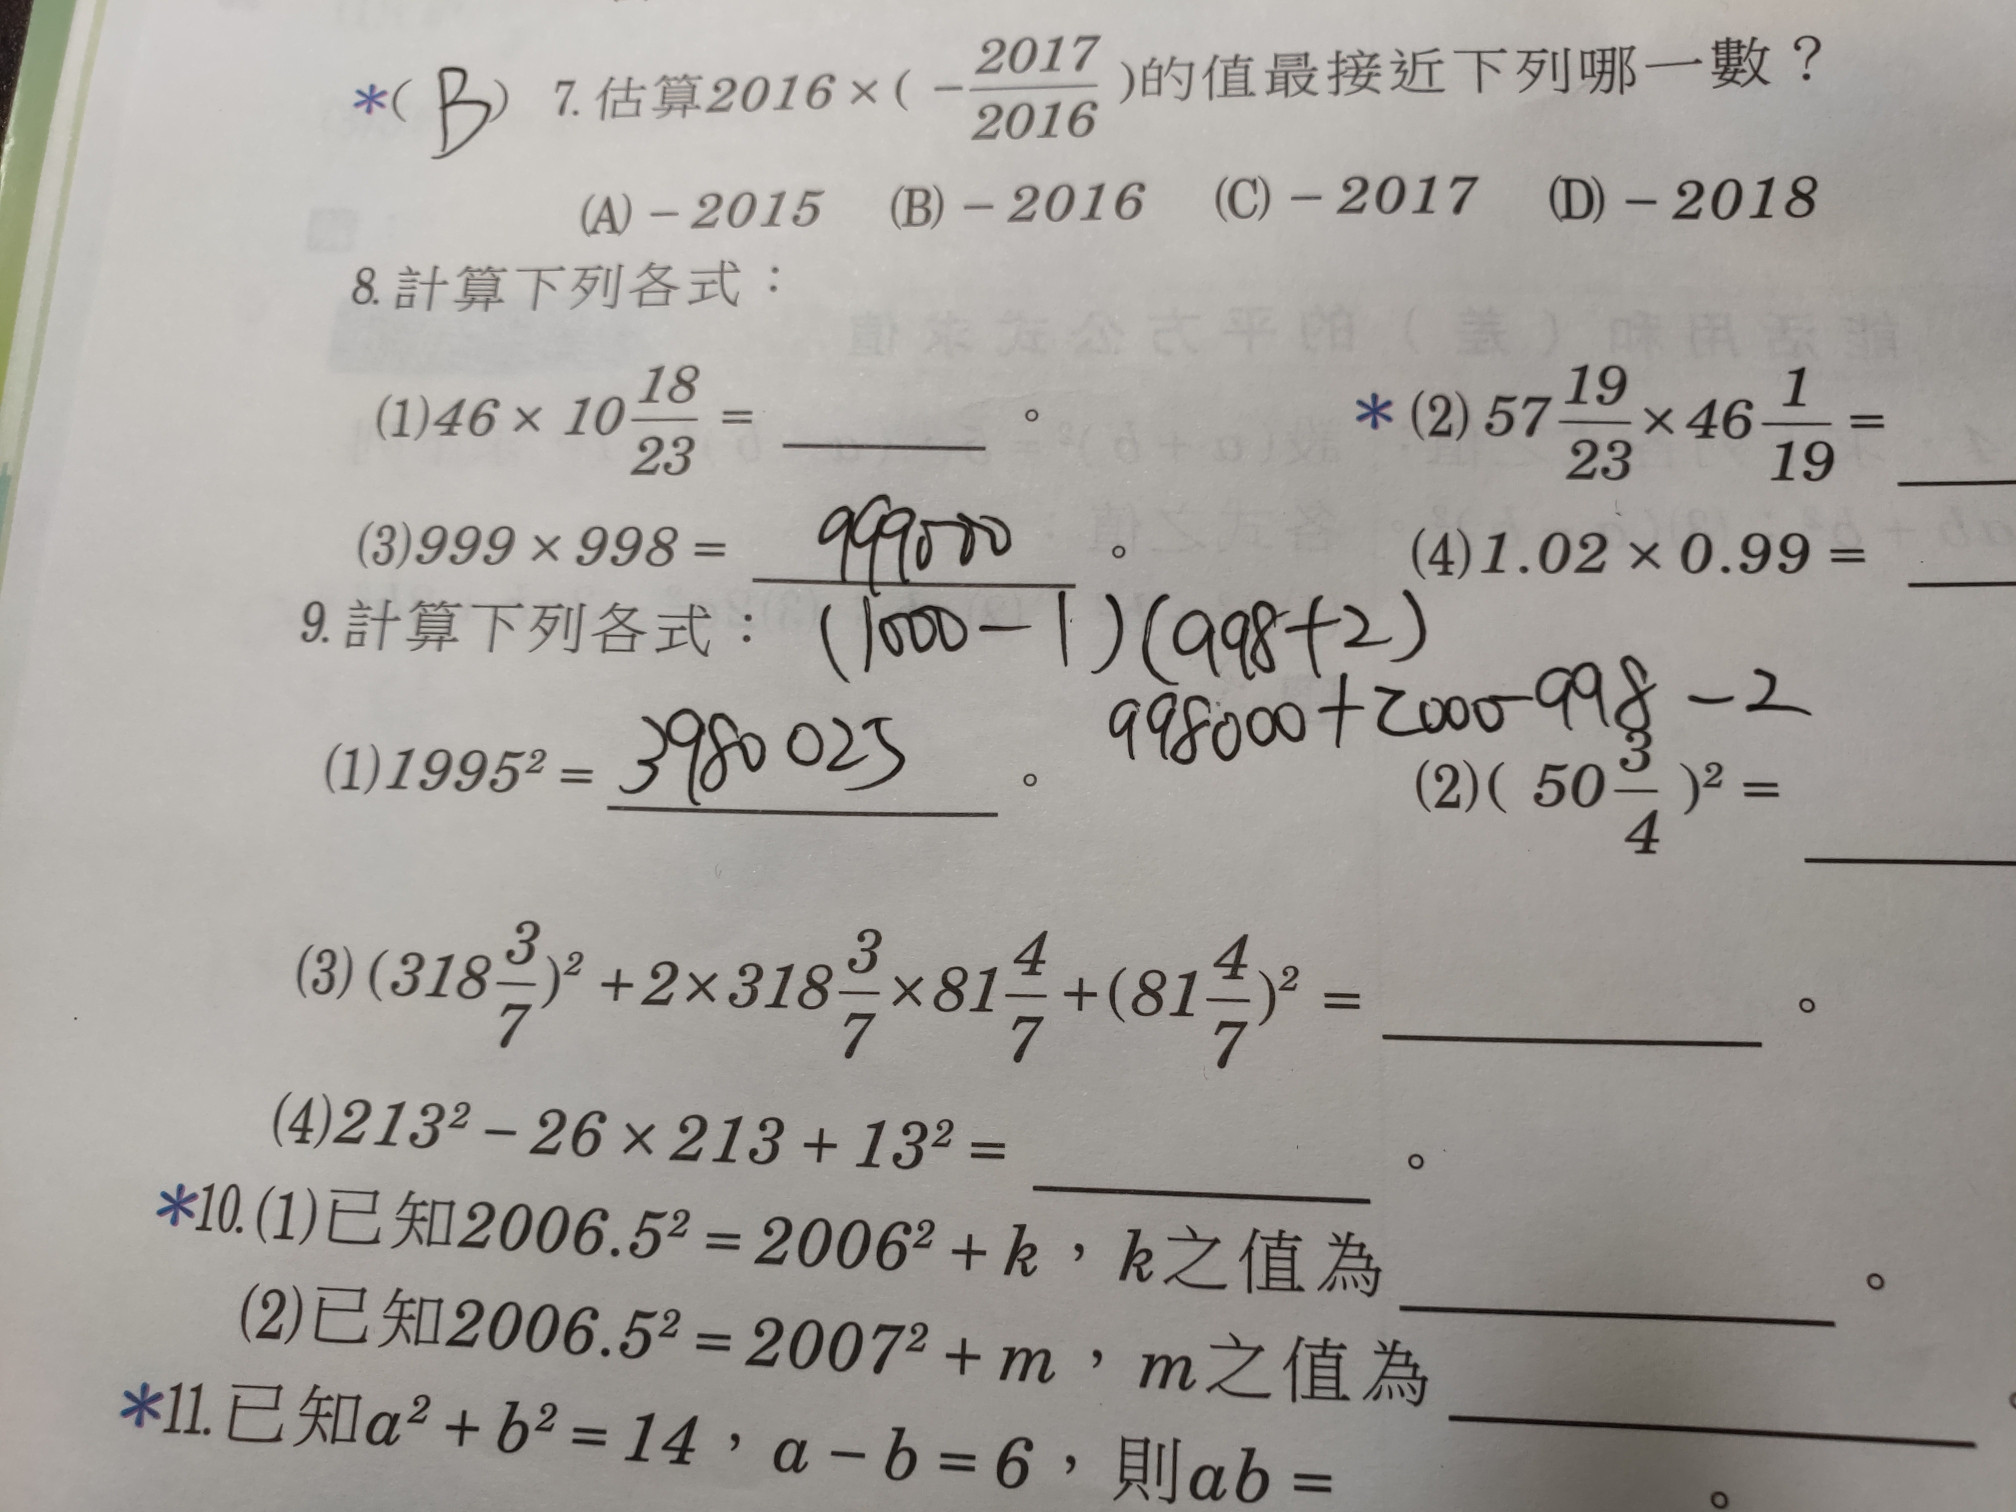 *( B ) 7. 估算2016×( −2017/2016 )的值最接近下列哪一數？
(A)−2015 (B)−2016 (C)−2017 (D)−2018
8. 計算下列各式：
(1)46×10 18/23 = ______ 。 *(2)57 19/23×46 1/19 = ______
(3)999×998 = 999000 。 (4)1.02×0.99 = ______
(1000−1)(998+2)
9. 計算下列各式：
998000+2000−998−2
(1)1995² = 3980025 。 (2)( 50 3/4 )² = ______
(3)(318 3/7)²+2×318 3/7×81 4/7+(81 4/7)² = ______ 。
(4)213²−26×213+13² = ______ 。
*10.(1)已知2006.5²=2006²+k，k之值為______ 。
(2)已知2006.5²=2007²+m，m之值為______
*11.已知a²+b²=14，a−b=6，則ab= 。